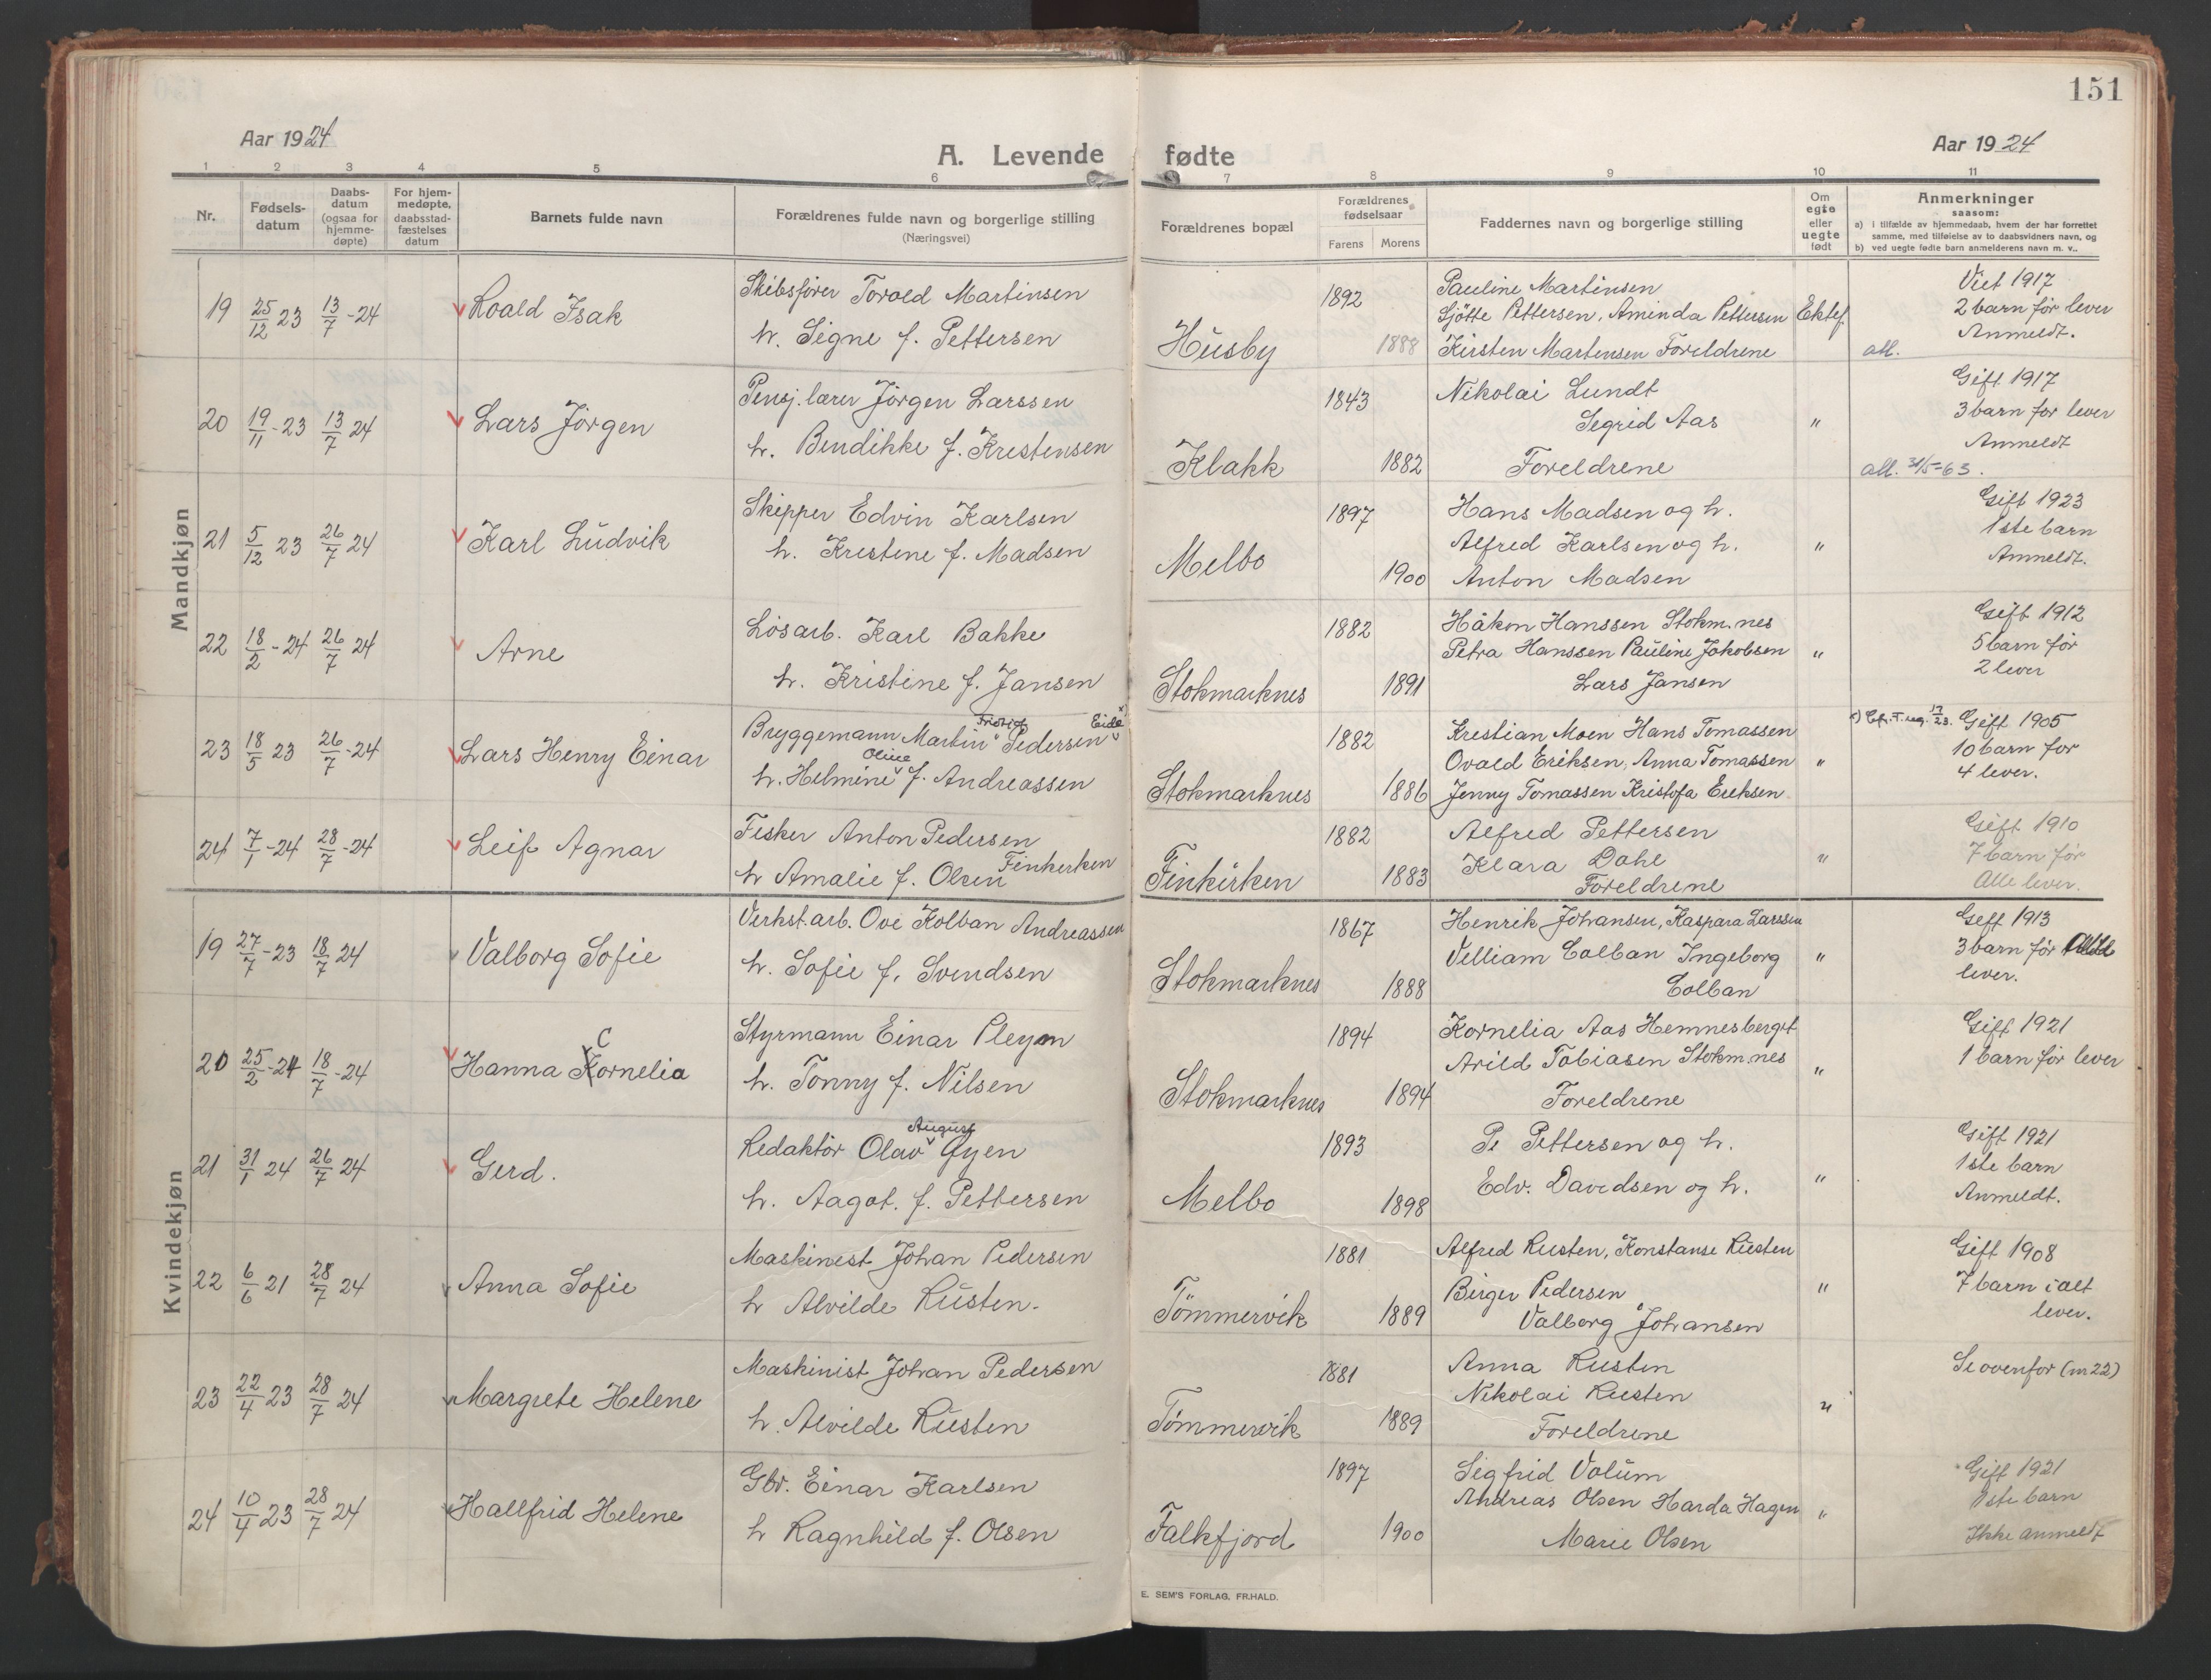 151
Aar 1924
A. Levende fødte
Aar 1924
1 2 3 4 5 6 7 8 9 10 11
Nr.
Fødsels-
datum
Daabs-
datum
(ogsaa for
hjemme-
døpte)
For hjem-
medøpte,
daabsstad-
fæstelses
datum
Barnets fulde navn
Forældrenes fulde navn og borgerlige stilling
(Næringsvei)
Forældrenes bopæl
Forældrenes
fødselsaar
Farens Morens
Faddernes navn og borgerlige stilling
Om
egte
eller
uegte
født
Anmerkninger
saasom:
a) i tilfælde av hjemmedaab, hvem der har forrettet
samme, med tilføielse av to daabsvidners navn, og
b) ved uegte fødte barn anmelderens navn m. v..
Mandkjøn
19 25/12 23 13/7-24 Roald Isak
Skibsfører Torold Martinsen
h. Signe f. Pettersen
Husby 1892 1888
Pauline Martinsen
Sjötte Pettersen, Aminda Pettersen
Kirsten Martensen Foreldrene
Ektef.
Viet 1917
2 barn før lever
Anmeldt.
att.
20 19/11-23 13/7 24 Lars Jörgen
Pensj. lærer Jörgen Larssen
h. Bendikke f. Kristensen
Klakk 1843 1882
Nikolai Lundt
Segrid Aas
Foreldrene
"
Gift 1917
3 barn før lever
Anmeldt
att. 31/5-63.
21 5/12 23 26/7 24 Karl Ludvik
Skipper Edvin Karlsen
h. Kristine f. Madsen
Melbo 1897 1900
Hans Madsen og h.
Alfred Karlsen og h.
Anton Madsen
"
Gift 1923
1ste barn
Anmeldt.
22 18/2-24 26/7 24 Arne
Løsarb. Karl Bakke
h. Kristine f. Jansen
Stokmarknes 1882 1891
Håkon Hanssen Stokm.nes
Petra Hanssen Pauline Jakobsen
Lars Jansen
"
Gift 1912
5 barn før
2 lever
23 18/5 23 26/7-24 Lars Henry Einar
Bryggemann Martin Fridtjof Pedersen Eide x)
h. Helmine Oline f. Andreassen
Stokmarknes 1882 1886
Kristian Moen Hans Tomassen
Ovald Eriksen, Anna Tomassen
Jenny Tomassen Kristofa Eriksen
"
x) Cfr. T. reg. 17/23. Gift 1905
10 barn før
4 lever.
24 7/1-24 28/7-24 Leif Agnar
Fisker Anton Pedersen
h Amalie f. Olsen Finkirken
Finkirken 1882 1883
Alfred Pettersen
Klara Dahl
Foreldrene
"
Gift 1910
7 barn før
Alle lever.
Kvindekjøn
19 27/7-23 18/7 24 Valborg Sofie
Verkst.arb. Ove Kolban Andreassen
h. Sofie f. Svendsen
Stokmarknes 1867 1888
Henrik Johansen, Kaspara Larssen
Villiam Colban Ingeborg
Colban
"
Gift 1913
3 barn før
lever.
20 25/2-24 18/7-24 Hanna Cornelia
Styrmann Einar Pleym
h. Tonny f. Nilsen
Stokmarknes 1894 1894
Kornelia Aas Hemnesberget
Arild Tobiasen Stokm.nes
Foreldrene
"
Gift 1921
1 barn før lever
21 31/1 24 26/7 24 Gerd.
Redaktör Olav August Gyen
h. Aagot. f. Pettersen
Melbo 1893 1898
Pe Pettersen og h.
Edv. Davidsen og h.
"
Gift 1921
1ste barn
Anmeldt.
22 6/6 21 28/7 24 Anna Sofie
Maskinist Johan Pedersen
h Alvilde Rusten.
Tömmervik 1881 1889
Alfred Rusten, Konstanse Rusten
Birger Pedersen
Valborg Johansen
"
Gift 1908
7 barn i alt
lever.
23 22/4 23 28/7 24 Margrete Helene
Maskinist Johan Pedersen
h. Alvilde Rusten
Tömmervik 1881 1889
Anna Rusten
Nikolai Rusten
Foreldrene
"
Se ovenfor (nr 22)
24 10/4 23 28/7 24 Hallfrid Helene
Gbr. Einar Karlsen
h Ragnhild f. Olsen
Falkfjord 1897 1900
Sigfrid Volum
Andreas Olsen Harda Hagen
Marie Olsen
"
Gift 1921
1ste barn
Ikke anmeldt
E. SEM'S FORLAG, FR.HALD.